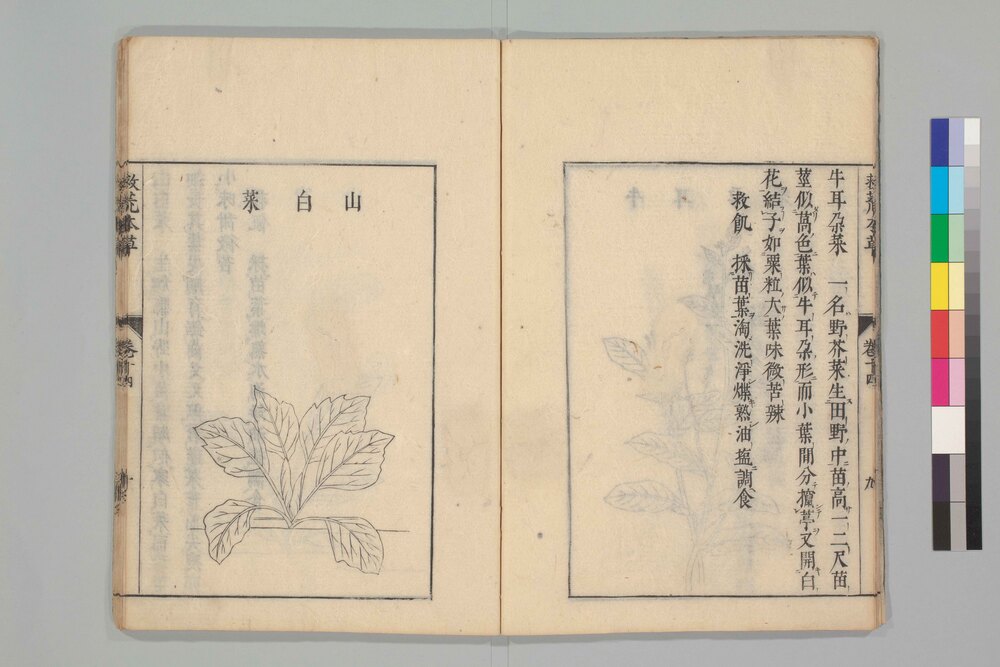 救荒本草 卷十四 九
牛耳朶菜 一名野芥菜生田野中苗高一二尺苗
莖似萵色葉似牛耳朶形而小葉間分攛葶又開白
花結子如粟粒大葉味微苦辣
救飢 採苗葉淘洗淨煠熟油塩調食
山白菜
救荒本草 卷十四 十